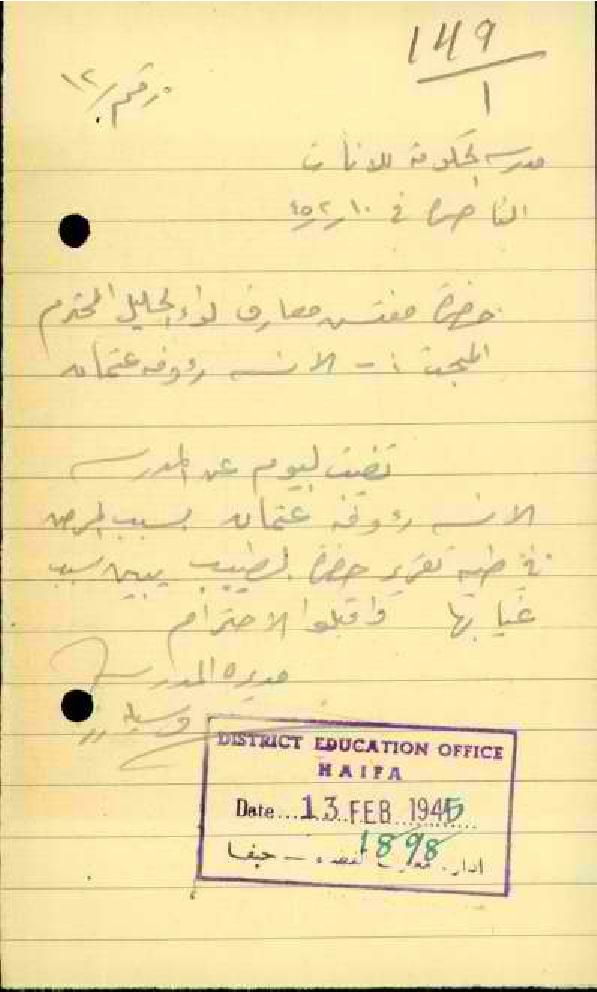 149
1
رقم / ١٢
مدرسة الحكومة للاناث
الناصرة في ١٠/٢/٤٥
حضرة مفتش معارف لواء الجليل المحترم
المبحث :- الانسه رؤوفه عثمان
تغيبت اليوم عن المدرسه
الانسه رؤوفه عثمان بسبب المرض
في طيه تقرير حضرة الطبيب يبين سبب
غيابها واقبلوا الاحترام
مديرة المدرسه
DISTRICT EDUCATION OFFICE
HAIFA
Date 13 FEB 1945
1898
حيفا